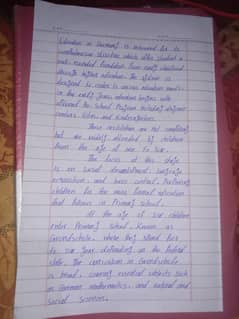 Education in Germany is renowned for its
comprehensive structure which offer student a
well-rounded foundation from early childhood
through higher education. The system is
designed to cater to various education needs
in the early years, education begins with
allowed the School Program including daycare
centers Kitas and Kindergartens.
These institution are not compulsory
but are widely attended by children
from the age of one to six.
The focus at this stage
is on social development language
and basic Preparing
children for the more formal education
that follows in Primary School.
At the age of six children
enter Primary School known as
Grundschule, where they attend for
to six year depending on the federal
state. The curriculum in Grundschule
is broad, covering essential subjects such
as German mathematics, and natural and
Social Sciences.